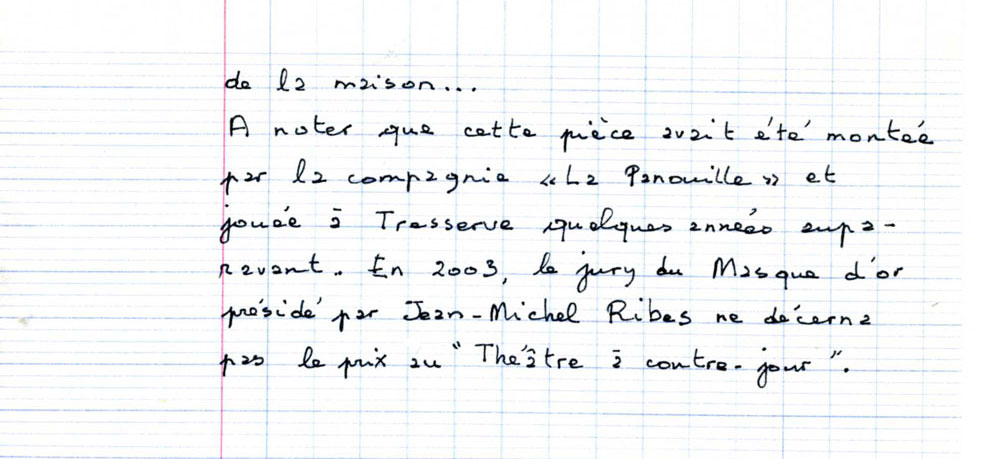 de la maison...
A noter que cette pièce avait été montée
par la compagnie « La Panouille » et
jouée à Tresserve quelques années aupa-
ravant. En 2003, le jury du Masque d'or
présidé par Jean-Michel Ribes ne décerna
pas le prix au "Théâtre à contre-jour".